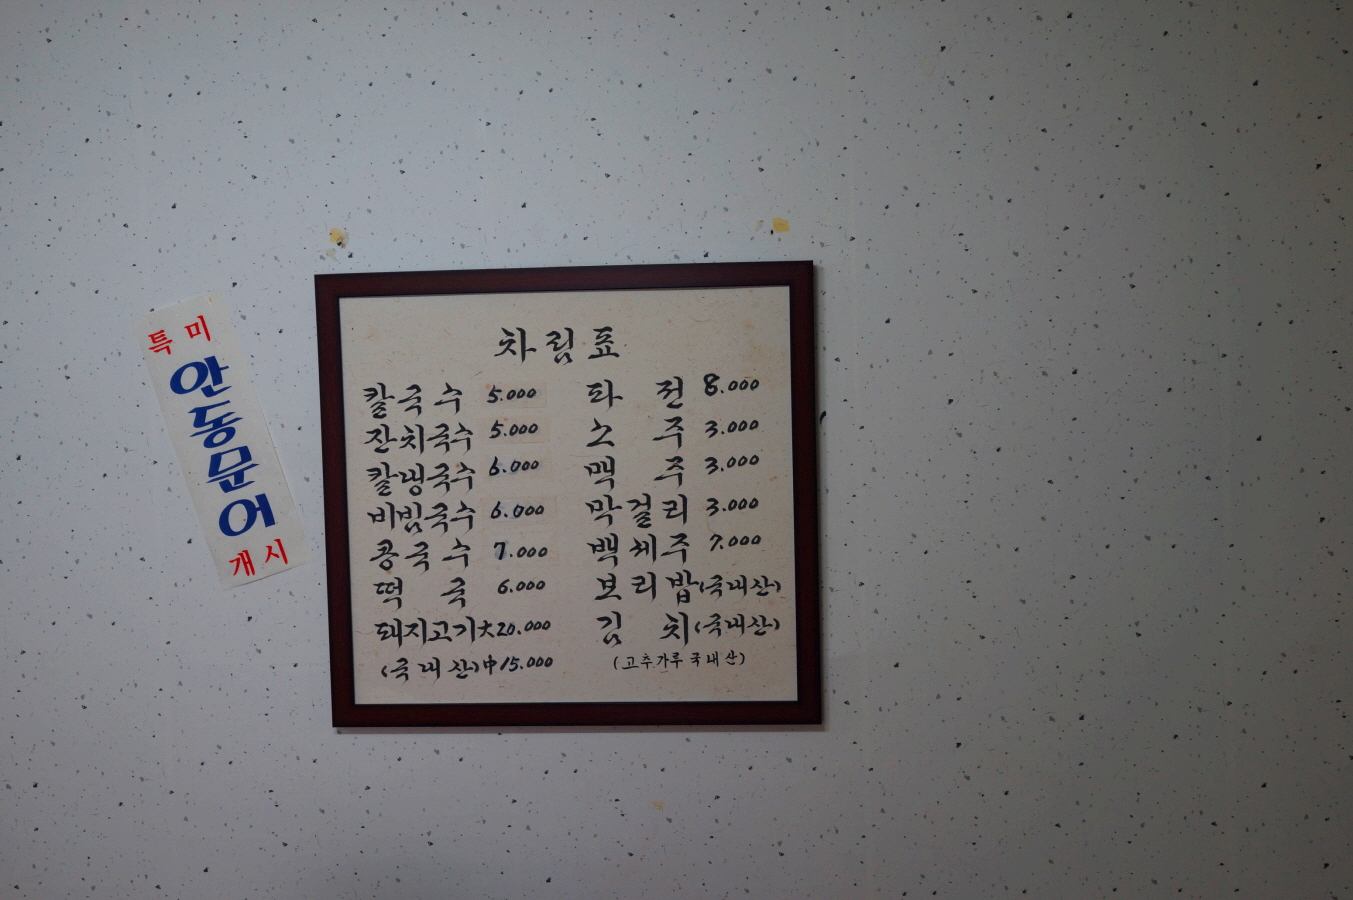 특미
안동문어
개시
차림표
칼국수 5.000
잔치국수 5.000
칼냉국수 6.000
비빔국수 6.000
콩국수 7.000
떡국 6.000
돼지고기 大 20.000
(국내산) 中 15.000
파전 8.000
소주 3.000
맥주 3.000
막걸리 3.000
백세주 7.000
보리밥 (국내산)
김치 (국내산)
(고추가루 국내산)